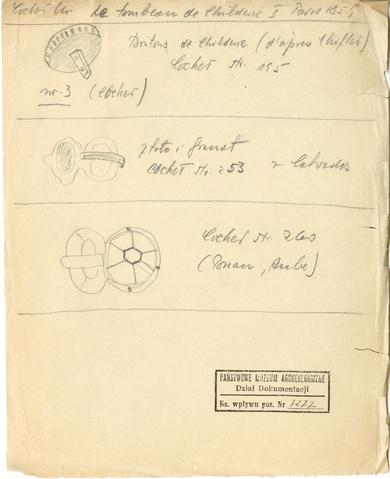 Cochet le tombeau de Childeric I Paris 1859
Boutons de Childeric (d'après Chiflet)
Cochet str. 195
nr. 3 (Cochet)
złoto i granat
Cochet str. 253 z Calvados
Cochet str. 260
(Aube)
PAŃSTWOWE MUZEUM ARCHEOLOGICZNE
Dział Dokumentacji
Ks. wpływu poz. Nr 7277